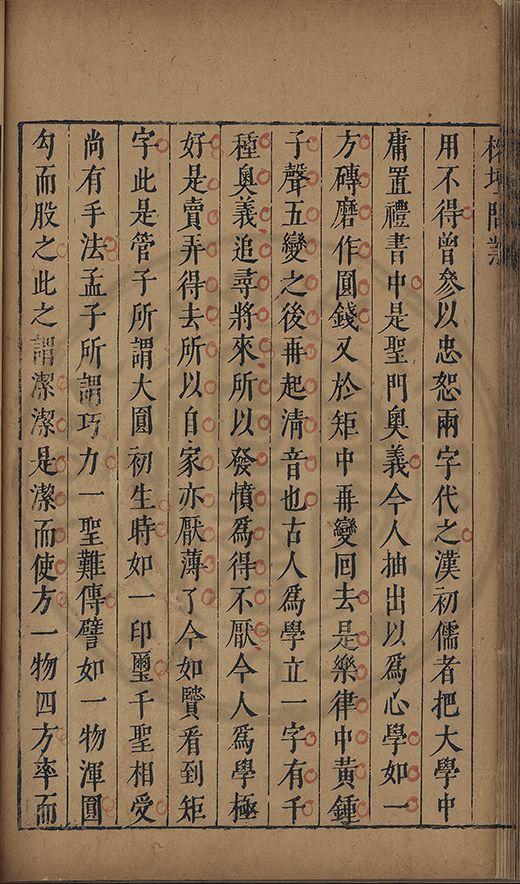 榕壇問業
用不得曾參以忠恕兩字代之漢初儒者把大學中
庸置禮書中是聖門奧義今人抽出以爲心學如一
方磚磨作圓錢又於矩中再變回去是樂律中黃鍾
子聲五變之後再起清音也古人爲學立一字有千
種奧義追尋將來所以發憤爲得不厭今人爲學極
好是賣弄得去所以自家亦厭薄了今如賢看到矩
字此是管子所謂大圓初生時如一印璽千聖相受
尚有手法孟子所謂巧力一聖難傳譬如一物渾圓
勾而股之此之謂潔潔是潔而使方一物四方率而